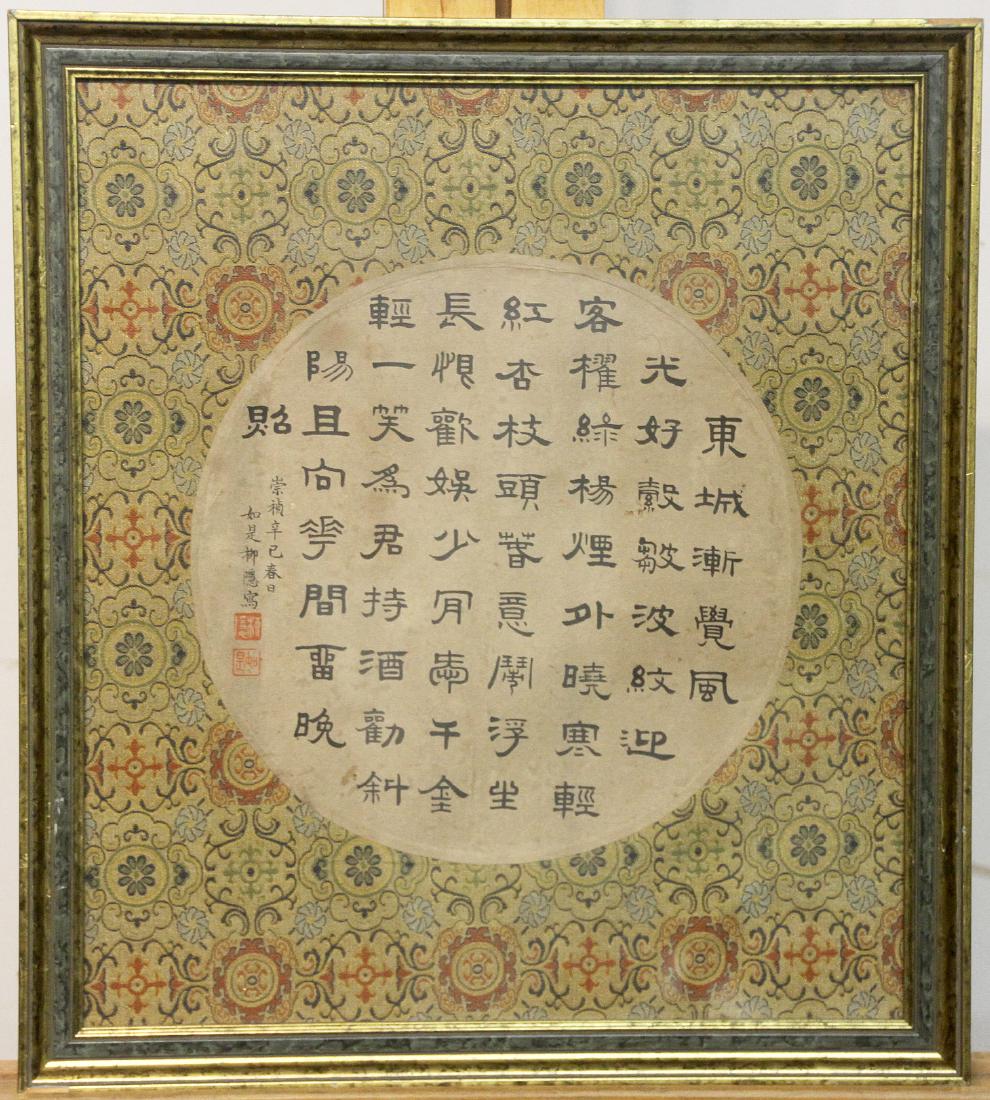 東城漸覺風
光好縠皺波紋迎
客櫂綠楊煙外曉寒輕
紅杏枝頭萅意鬧浮生
長恨歡娛少肎愛千金
輕一笑爲君持酒勸斜
陽且向花間畱晚
照
崇禎辛巳春日
如是柳隱寫
柳隱
如是